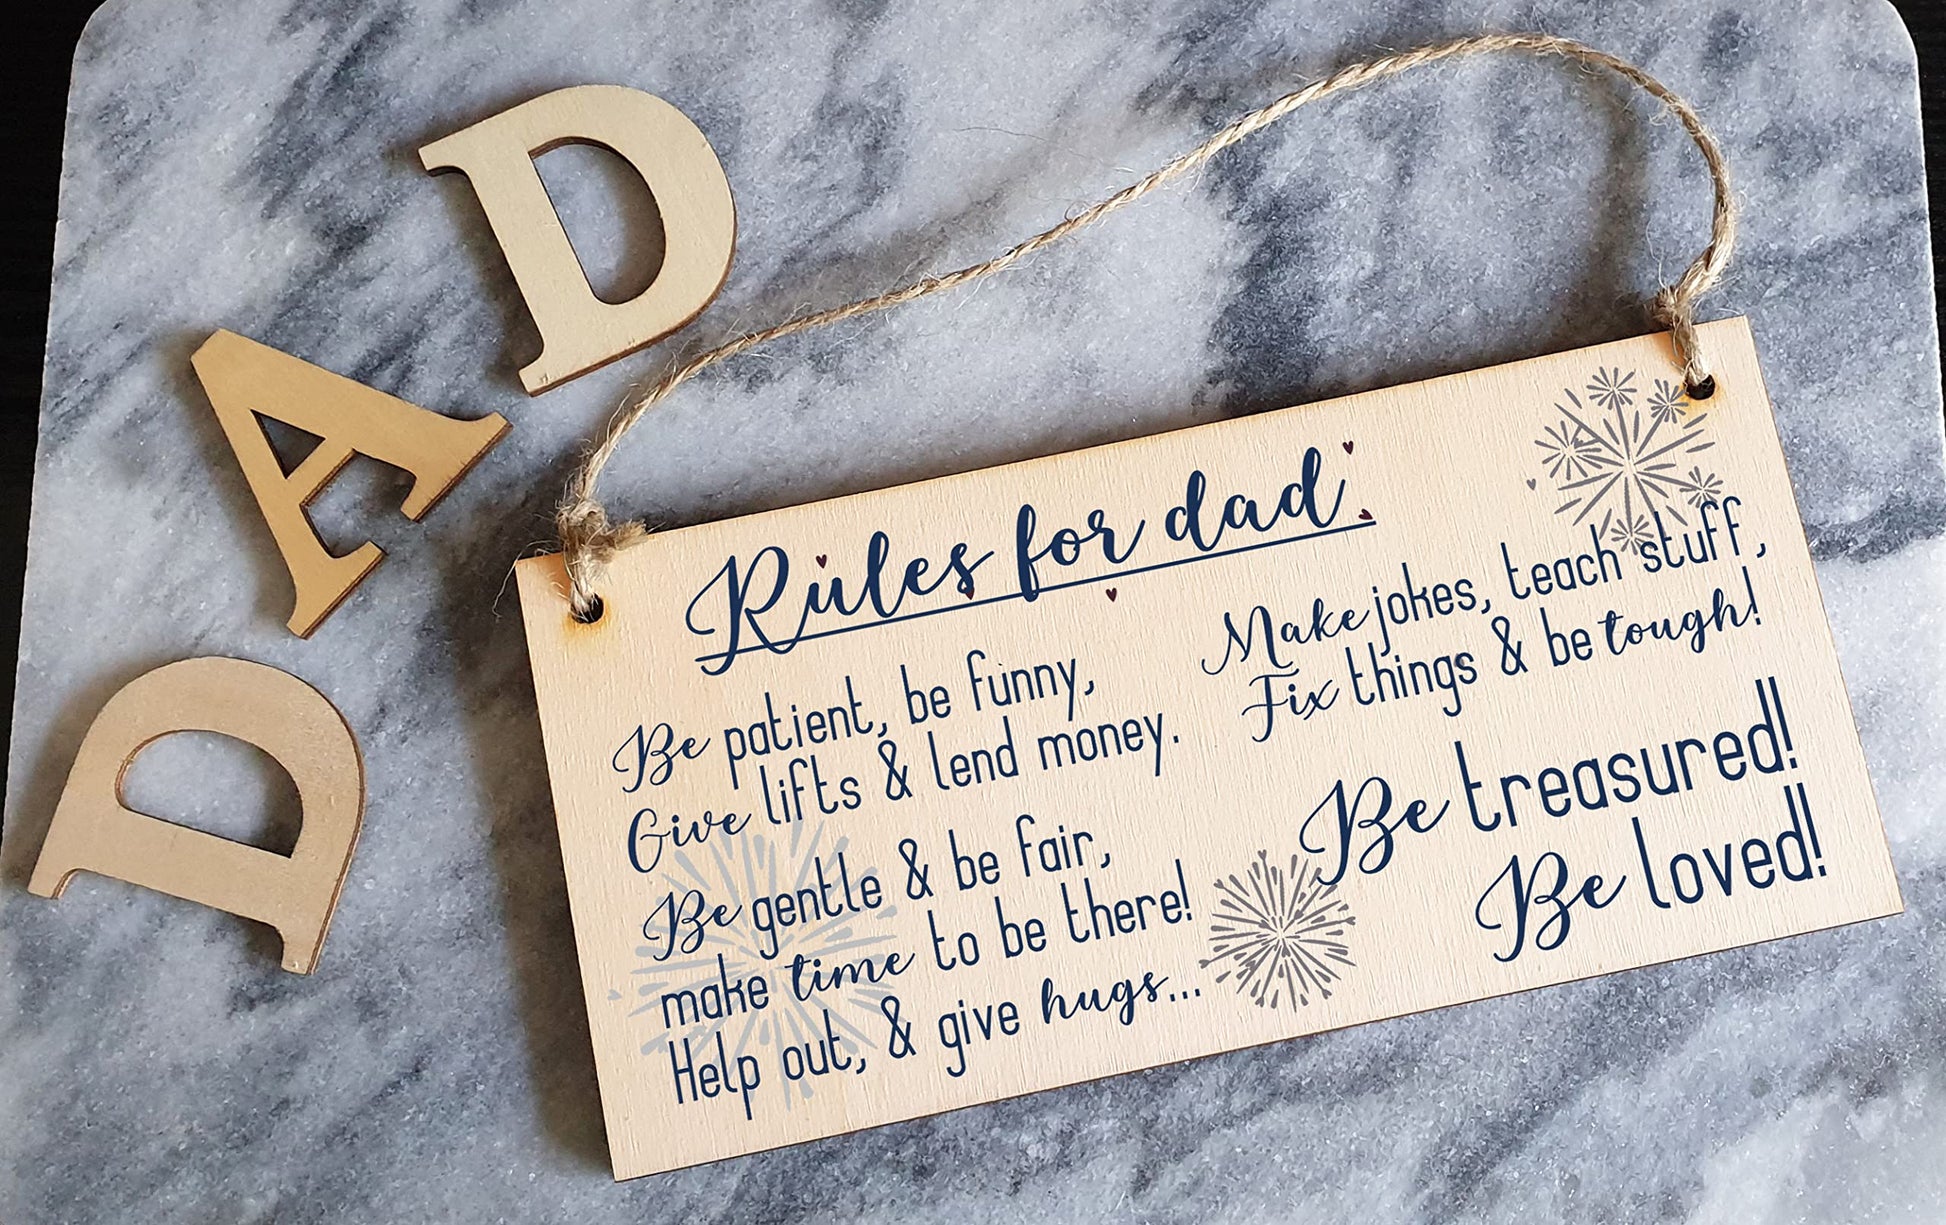 DAD
Rules for dad.
Be patient, be funny,
Give lifts & lend money.
Be gentle & be fair,
make time to be there!
Help out, & give hugs...
Make jokes, teach stuff,
Fix things & be tough!
Be treasured!
Be loved!